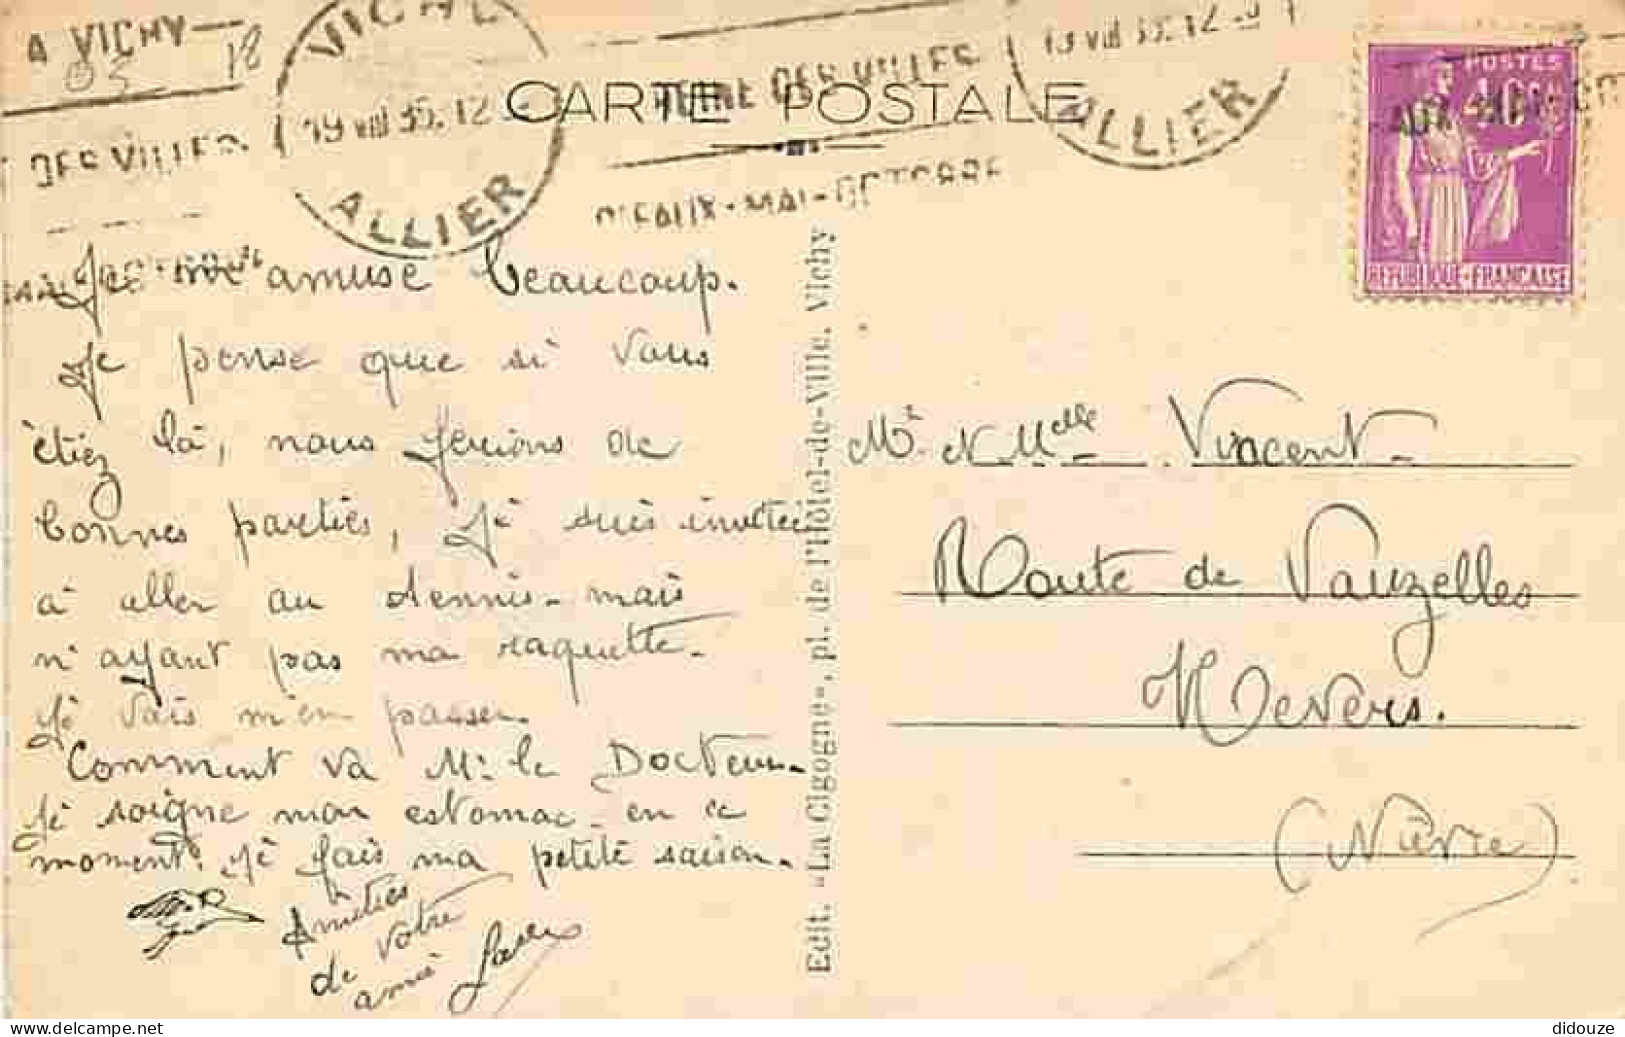 A VICHY
03 18
VICHY
19 VIII 35. 12
ALLIER
DES VILLES
CARTE POSTALE
REINE DES VILLES
D'EAUX - MAI-OCTOBRE
19 VIII 35. 12
ALLIER
POSTES
40c
REPUBLIQUE FRANÇAISE
Je m'amuse beaucoup.
Je pense que si vous
étiez là, nous ferions de
bonnes parties, je suis invitée
à aller au tennis - mais
n'ayant pas ma raquette.
Je vais m'en passer.
Comment va Mr le Docteur.
Je soigne mon estomac - en ce
moment. Je fais ma petite saison.
Amitiés
de votre
amie
Edit. "La Cigogne", pl. de l'Hôtel-de-Ville. Vichy
Mr et Melle Vincent
Route de Vauzelles
Nevers.
(Nièvre)
didouze